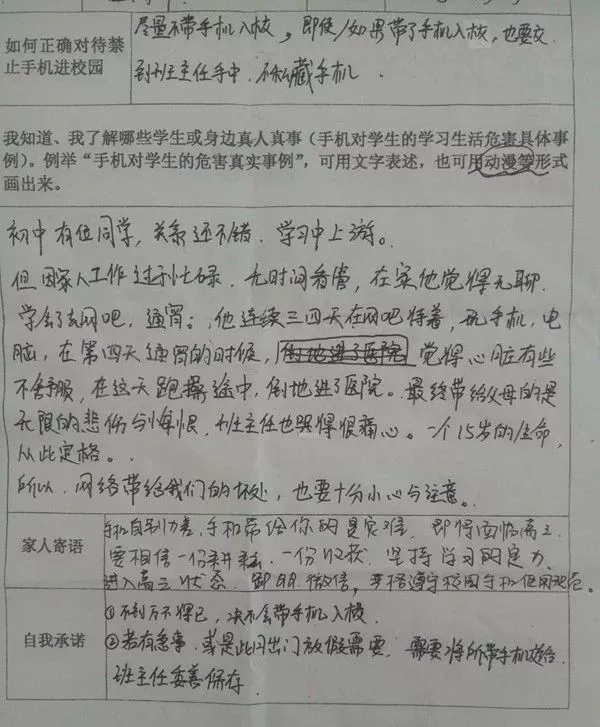 如何正确对待禁
止手机进校园
尽量不带手机入校,即使/如果带了手机入校,也要交
到班主任手中.不私藏手机.
我知道、我了解哪些学生或身边真人真事(手机对学生的学习生活危害具体事
例)。例举“手机对学生的危害真实事例”,可用文字表述,也可用动漫等形式
画出来。
初中有位同学,关系还不错.学习中上游。
但因家人工作过于忙碌.无时间看管,在家他觉得无聊.
学会了去网吧,通宵;他连续三四天在网吧待着,玩手机,电
脑,在第四天通宵的时候,倒地进了医院 觉得心脏有些
不舒服,在这天跑操途中,倒地进了医院。最终带给父母的是
无限的悲伤与悔恨.班主任也哭得很痛心。一个15岁的生命,
从此定格。
所以.网络带给我们的坏处,也要十分小心与注意。
家人寄语
自制力差,手机带给你的是灾难.即将面临高三.
要相信一份耕耘.一份收获.坚持学习的定力.
进入高三状态.卸QQ.微信,严格遵守校园手机使用规范。
自我承诺
①不到万不得已,决不会带手机入校.
②若有急事.或是比如出门放假需要.需要将所带手机送给
班主任妥善保存.